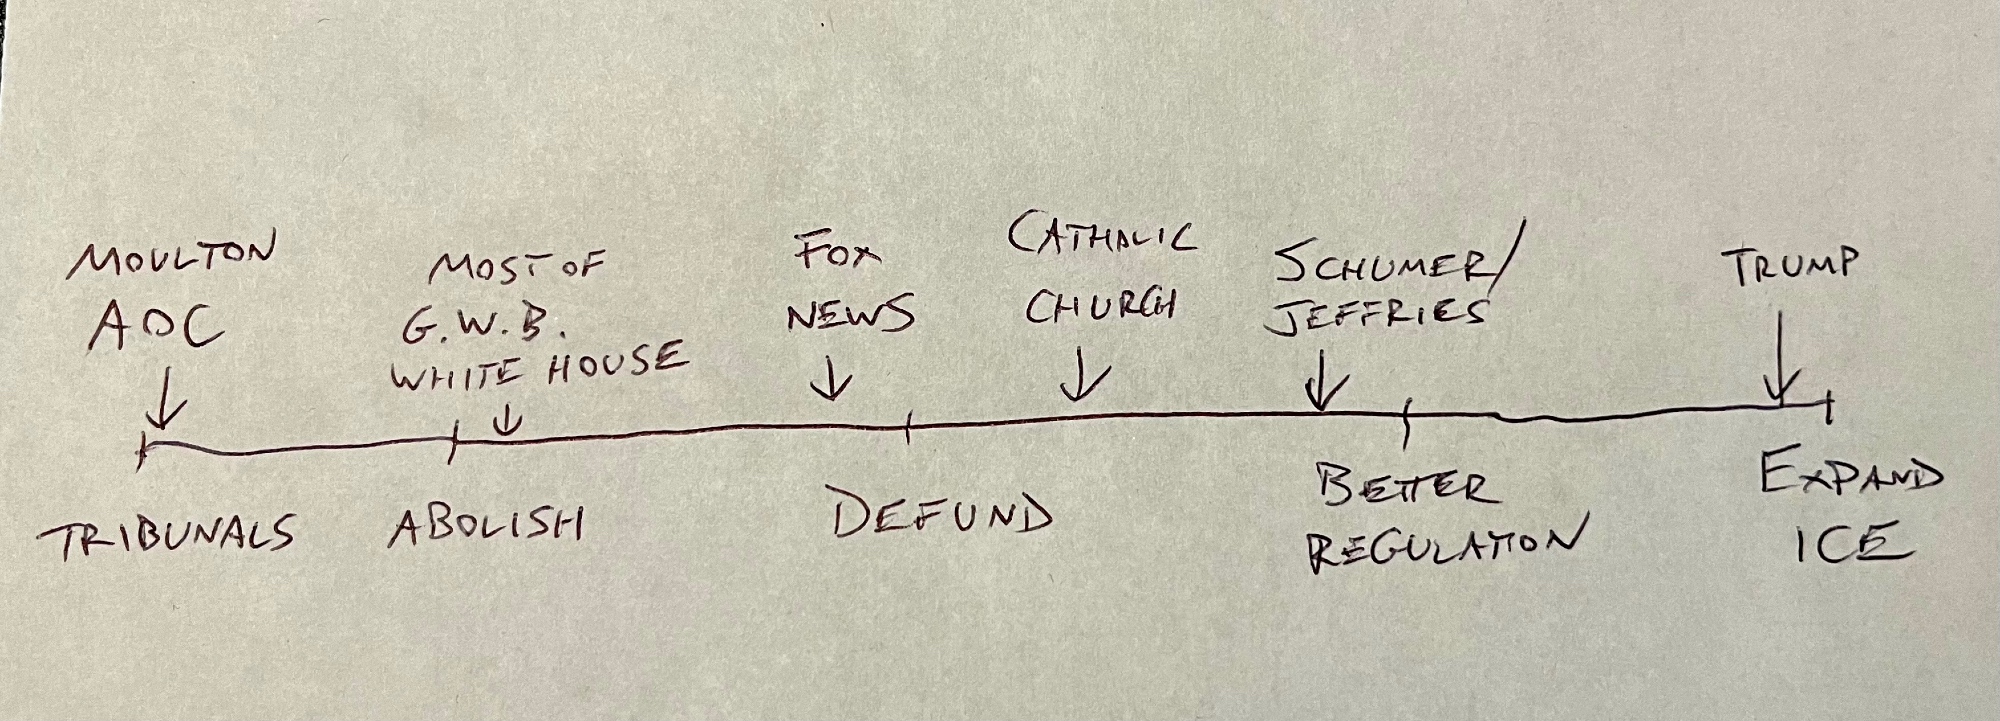 MOULTON
AOC
MOST OF
G.W.B.
WHITE HOUSE
FOX
NEWS
CATHOLIC
CHURCH
SCHUMER/
JEFFRIES
TRUMP
TRIBUNALS
ABOLISH
DEFUND
BETTER
REGULATION
EXPAND
ICE